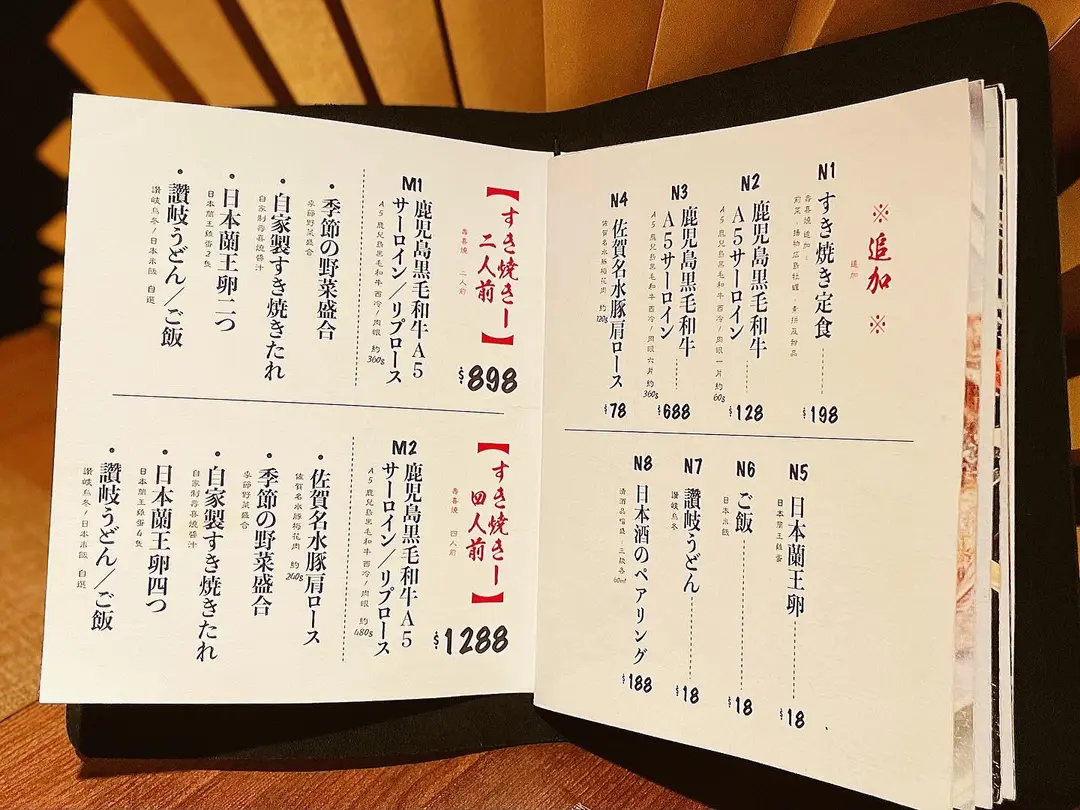 ※追加※
追加
N1
すき焼き定食
$198
壽喜燒追加：
N2
鹿児島黒毛和牛
A5サーロイン
A5鹿兒島黑毛和牛西冷/肉眼一片 約60g
$128
N3
鹿児島黒毛和牛
A5サーロイン
A5鹿兒島黑毛和牛西冷/肉眼六片 約360g
$688
N4
佐賀名水豚肩ロース
佐賀名水豚梅花肉 約120g
$78
N5
日本蘭王卵
日本蘭王雞蛋
$18
N6
ご飯
日本米飯
$18
N7
讃岐うどん
讚岐烏冬
$18
N8
日本酒のペアリング
清酒品嚐盛 - 三款各60ml
$188
【すき焼きー
二人前】
壽喜燒 二人前
$898
M1
鹿児島黒毛和牛A5
サーロイン／リブロース
A5鹿兒島黑毛和牛西冷/肉眼 約360g
・季節の野菜盛合
季節野菜盛合
・自家製すき焼きたれ
自家制壽喜燒醬汁
・日本蘭王卵二つ
日本蘭王雞蛋2隻
・讃岐うどん／ご飯
讚岐烏冬/日本米飯 自選
【すき焼きー
四人前】
壽喜燒 四人前
$1288
M2
鹿児島黒毛和牛A5
サーロイン／リブロース
A5鹿兒島黑毛和牛西冷/肉眼 約480g
・佐賀名水豚肩ロース
佐賀名水豚梅花肉 約240g
・季節の野菜盛合
季節野菜盛合
・自家製すき焼きたれ
自家制壽喜燒醬汁
・日本蘭王卵四つ
日本蘭王雞蛋4隻
・讃岐うどん／ご飯
讚岐烏冬/日本米飯 自選